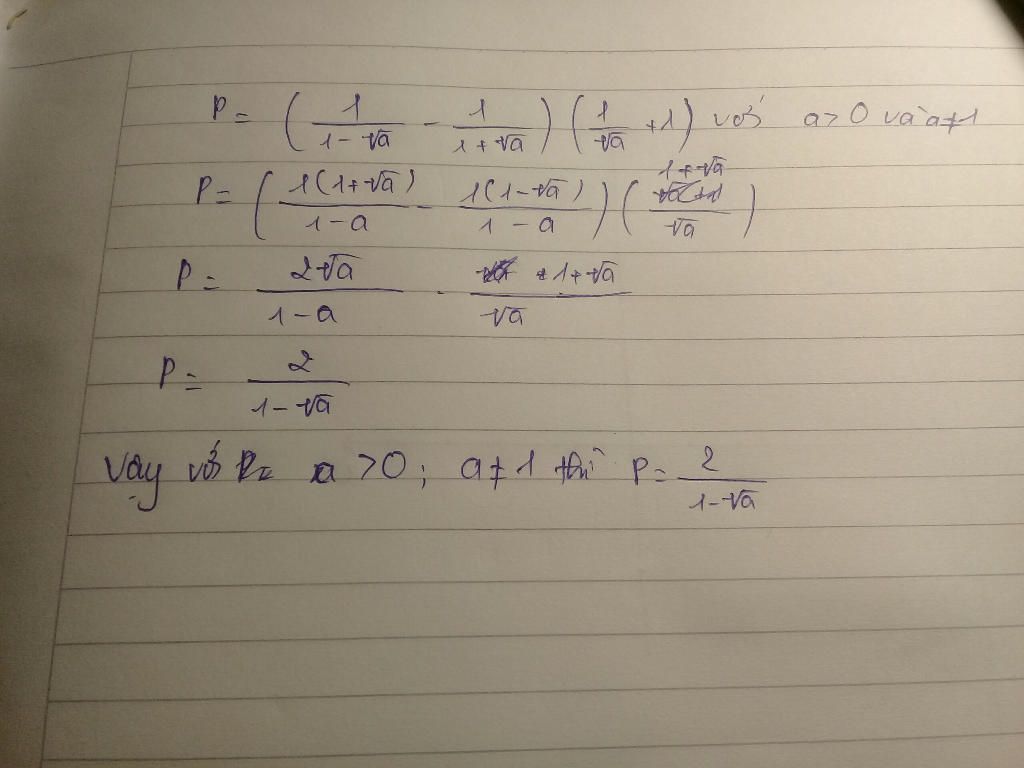 P = ( 1/(1 - √a) - 1/(1 + √a) ) ( 1/√a + 1 ) với a > 0 và a ≠ 1
P = ( 1(1+√a)/(1 - a) - 1(1-√a)/(1 - a) ) ( (1 + √a)/√a )
P = 2√a/(1 - a) . (1 + √a)/√a
P = 2/(1 - √a)
Vậy với a > 0 ; a ≠ 1 thì P = 2/(1 - √a)